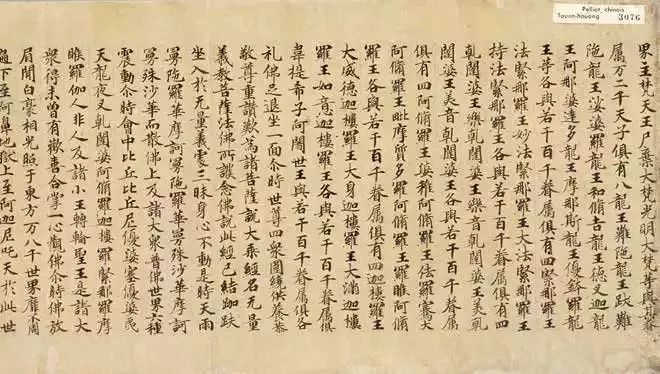 Pelliot chinois
Touen-houang 3076
界主梵天王尸棄大梵光明大梵等與其眷
属万二千天子俱有八龍王難陁龍王跋難
陁龍王娑羅龍王和脩吉龍王德叉迦龍
王阿那婆達多龍王摩那斯龍王優鉢羅龍
王等各與若干百千眷属俱有四緊那羅王
法緊那羅王妙法緊那羅王大法緊那羅王
持法緊那羅王各與若干百千眷属俱有四
乹闥婆王樂乹闥婆王樂音乹闥婆王美乹
闥婆王美音乹闥婆王各與若干百千眷属
俱有四阿脩羅王婆稚阿脩羅王佉羅騫大
阿脩羅王毗摩質多羅阿脩羅王羅睺阿脩
羅王各與若干百千眷属俱有四迦樓羅王
大威德迦樓羅王大身迦樓羅王大滿迦樓
羅王如意迦樓羅王各與若干百千眷属俱
韋提希子阿闍世王與若干百千眷属俱各
礼佛足退坐一面尒時世尊四衆圍繞供養恭
敬尊重讃歎為諸菩薩說大乘經名无量
義教菩薩法佛所護念佛說此經已結跏趺
坐入於无量義處三昧身心不動是時天雨
曼陁羅華摩訶曼陁羅華曼殊沙華摩訶
曼殊沙華而散佛上及諸大衆普佛世界六種
震動尒時會中比丘比丘尼優婆塞優婆夷
天龍夜叉乹闥婆阿脩羅迦樓羅緊那羅摩
睺羅伽人非人及諸小王轉輪聖王是諸大
衆得未曾有歡喜合掌一心觀佛尒時佛放
眉間白豪相光照于東方万八千世界靡不周
遍下至阿鼻地獄上至阿迦尼吒天於此世